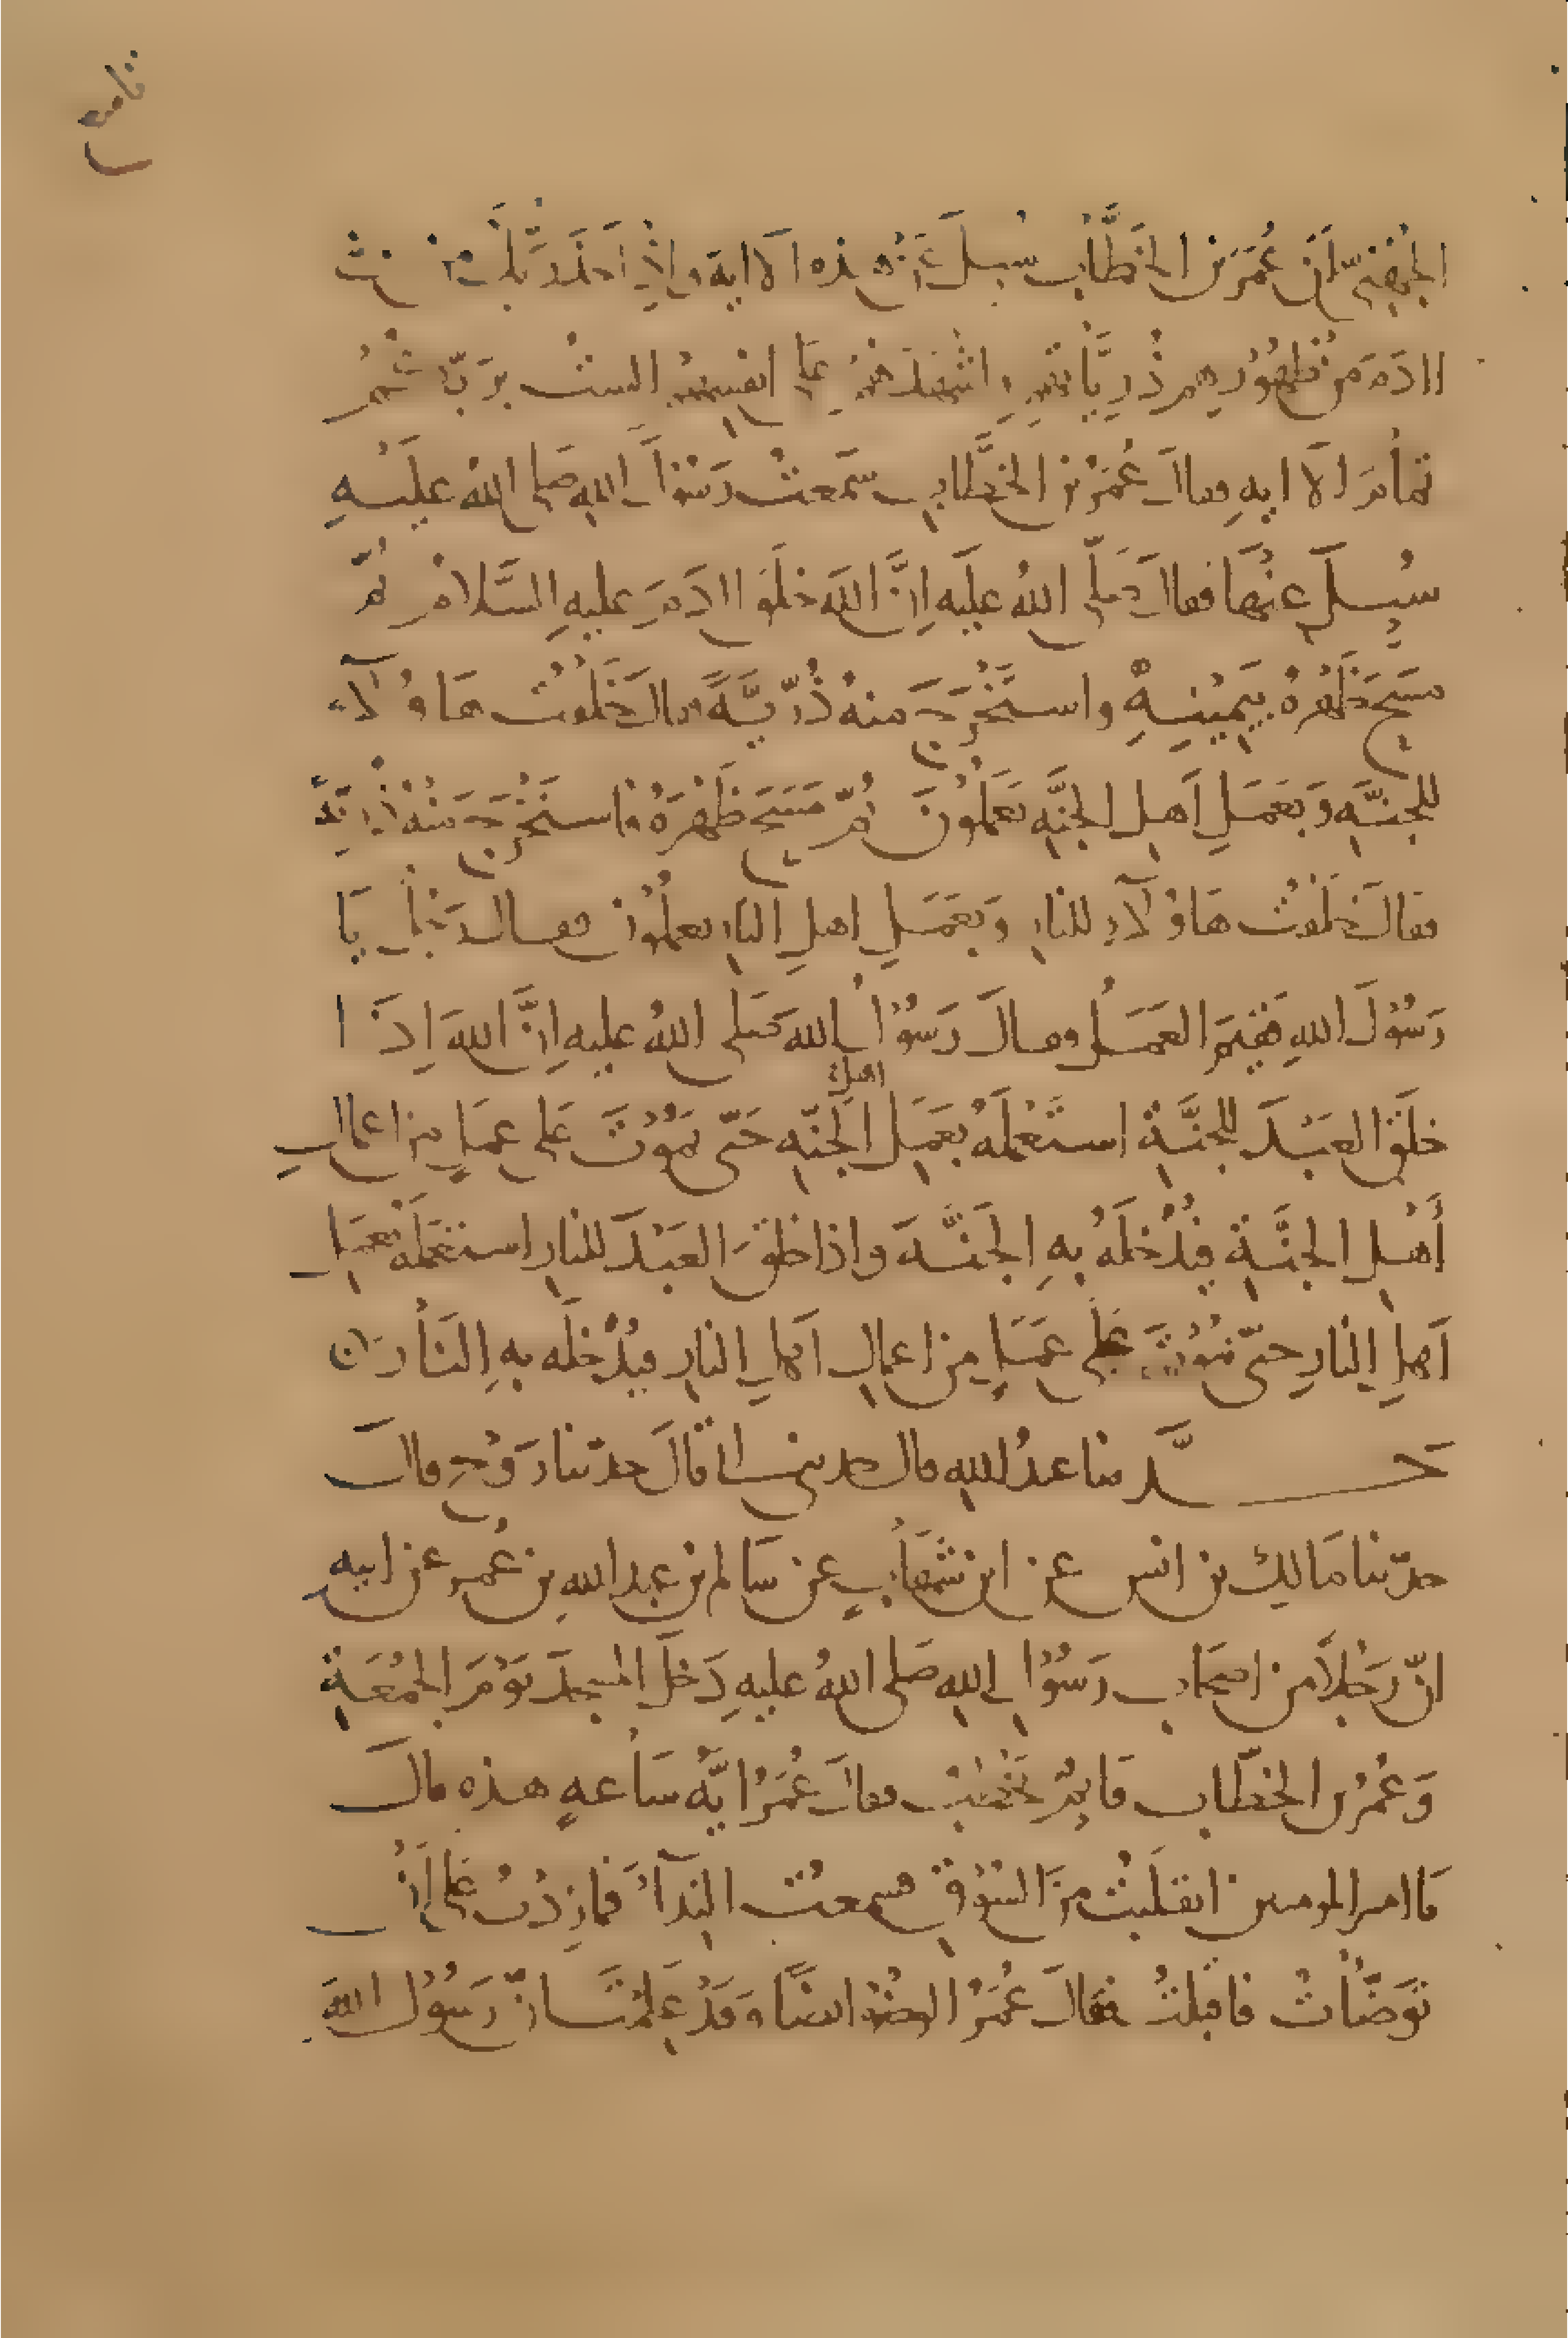 ثامن
الجُهَنِيّ اَنّ عُمَرَ بن الخَطَّاب سُيِلَ عَنْ هذه الاَايه واِذْ اَخَذَ رَبُّكَ مِنْ بَنِي
اادَمَ مِن ظُهُوْرِهِم ذُرِّيَّاتِهِم واَشْهَدَهُمْ عَلى انفسِهِمْ الستُ بِرَبِّكُمُ
تمامَ الاَايهِ فقالَ عُمَرُ بن الخَطَّابِ سَمعتُ رَسُوْلَ اللهِ صَلى اللهُ عليْهِ
سُيِلَ عنْهَا فقالَ صَلّى اللهُ عليْه اِنَّ اللهَ خلَقَ اادَمَ عليهِ السَّلامُ ثُمّ
مسَحَ ظَهْرهُ بِيَمِيْنِهِ واستَخْرَجَ منهُ ذُرّيَّةً فقالَ خَلَقْتُ هَاوُلَآءِ
للجنَّهِ وَبعَمَلِ اَهلِ الجنَّهِ يَعمَلُوْنَ ثُمّ مَسَحَ ظَهْرَهُ فاستَخْرَجَ مَنْهُ ذُرّيَّةً
فقالَ خلَقْتُ هَاوُلَآءِ للنارِ وَبعَمَلِ اهلِ النّارِ يعملُوْن فقال رَجُلٌ يَا
رَسُوْلَ اللهِ فَفِيْمَ العَمَلُ فقالَ رَسُوْلُ اللهِ صَلى اللهُ عليه اِنَّ اللهَ اِذَا
خلَقَ العَبْدَ للجنَّةِ استَعْمَلَهُ بعَمَلِ اهل الجَنّهِ حَتّى يَمُوْتَ عَلى عمَلٍ مِن اعمالِ
أَهْلِ الجنَّةِ فيُدْخلَهُ بهِ الجَنَّةَ واذا خلَقَ العَبْدَ للنارِ استعْمَلَهُ بعَمَلِ
اَهلِ النارِ حتّى يَمُوْتَ عَلى عَمَلٍ مِن اعمالِ اَهلِ النارِ فيُدْخلَه بهِ النَّارَ
حَدَّثنا عبدُ اللهِ قال حدثني ابي قالَ حدّثنا رَوْح قالَ
حدّثنا مَالِك بن انس عن ابن شهَابٍ عن سَالم بن عبد اللهِ بن عُمر عن ابيه
انّ رَجُلاً من اصحَاب رَسُوْلِ اللهِ صَلى اللهُ عليهِ دَخَلَ المسجدَ يَوْمَ الجُمُعَةِ
وَعُمَرُ بن الخطّاب قَايِمٌ يَخْطُبُ فقالَ عُمَرُ ايَّهُ سَاعهٍ هذه قالَ
يَا امير المومنين انقلَبْتُ مِنَ السُّوْقِ فسمعتُ النِّدآءَ فمَا زِدْتُ عَلى اَنْ
تَوَضَّأتُ فاقبلتُ فقالَ عُمَرُ الوضُوْءَ ايضًا وَقدْ عَلِمْتَ انّ رَسُوْلَ اللهِ